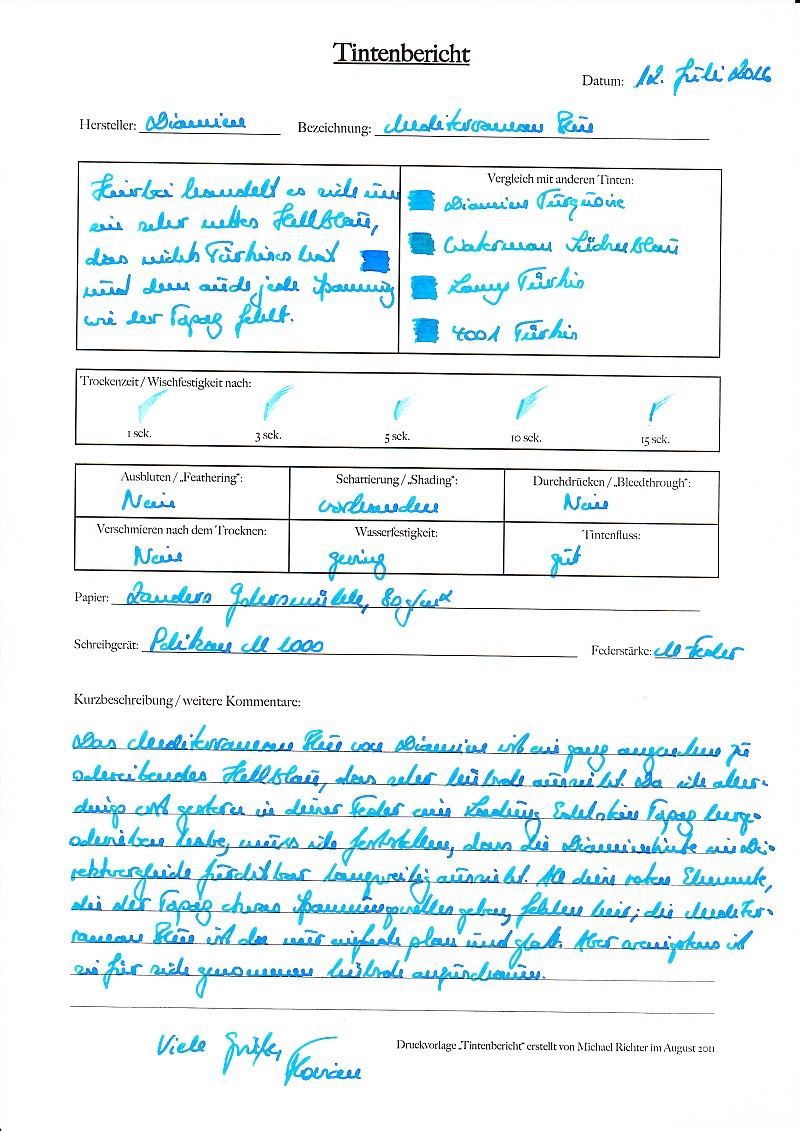 Tintenbericht
Datum: 12. Juli 2016
Hersteller: Diamine Bezeichnung: Mediterranean Blue
Hierbei handelt es sich um
ein sehr nettes Hellblau,
das nichts Türkises hat
und dem auch jede Spannung
wie der Topaz fehlt.
Vergleich mit anderen Tinten:
Diamine Turquoise
Waterman Südseeblau
Lamy Türkis
4001 Türkis
Trockenzeit / Wischfestigkeit nach:
1 sek. 3 sek. 5 sek. 10 sek. 15 sek.
Ausbluten / „Feathering“: Schattierung / „Shading“: Durchdrücken / „Bleedthrough“:
Nein vorhanden Nein
Verschmieren nach dem Trocknen: Wasserfestigkeit: Tintenfluss:
Nein gering gut
Papier: Zanders Gohrsmühle, 80 g/m²
Schreibgerät: Pelikan M 1000 Federstärke: M-Feder
Kurzbeschreibung / weitere Kommentare:
Das Mediterranean Blue von Diamine ist ein ganz angenehm zu
schreibendes Hellblau, das sehr hübsch aussieht. Da ich aller-
dings erst gestern in dieser Feder eine Ladung Edelstein Topaz leerge-
schrieben habe, muss ich feststellen, dass die Diaminetinte im Di-
rektvergleich furchtbar langweilig aussieht. All diese roten Elemente,
die der Topaz etwas Spannungsvolles geben, fehlen hier; die Mediter-
ranean Blue ist da nur einfach plan und glatt. Aber wenigstens ist
sie für sich genommen hübsch anzuschauen.
Viele Grüße,
Florian
Druckvorlage „Tintenbericht“ erstellt von Michael Richter im August 2011